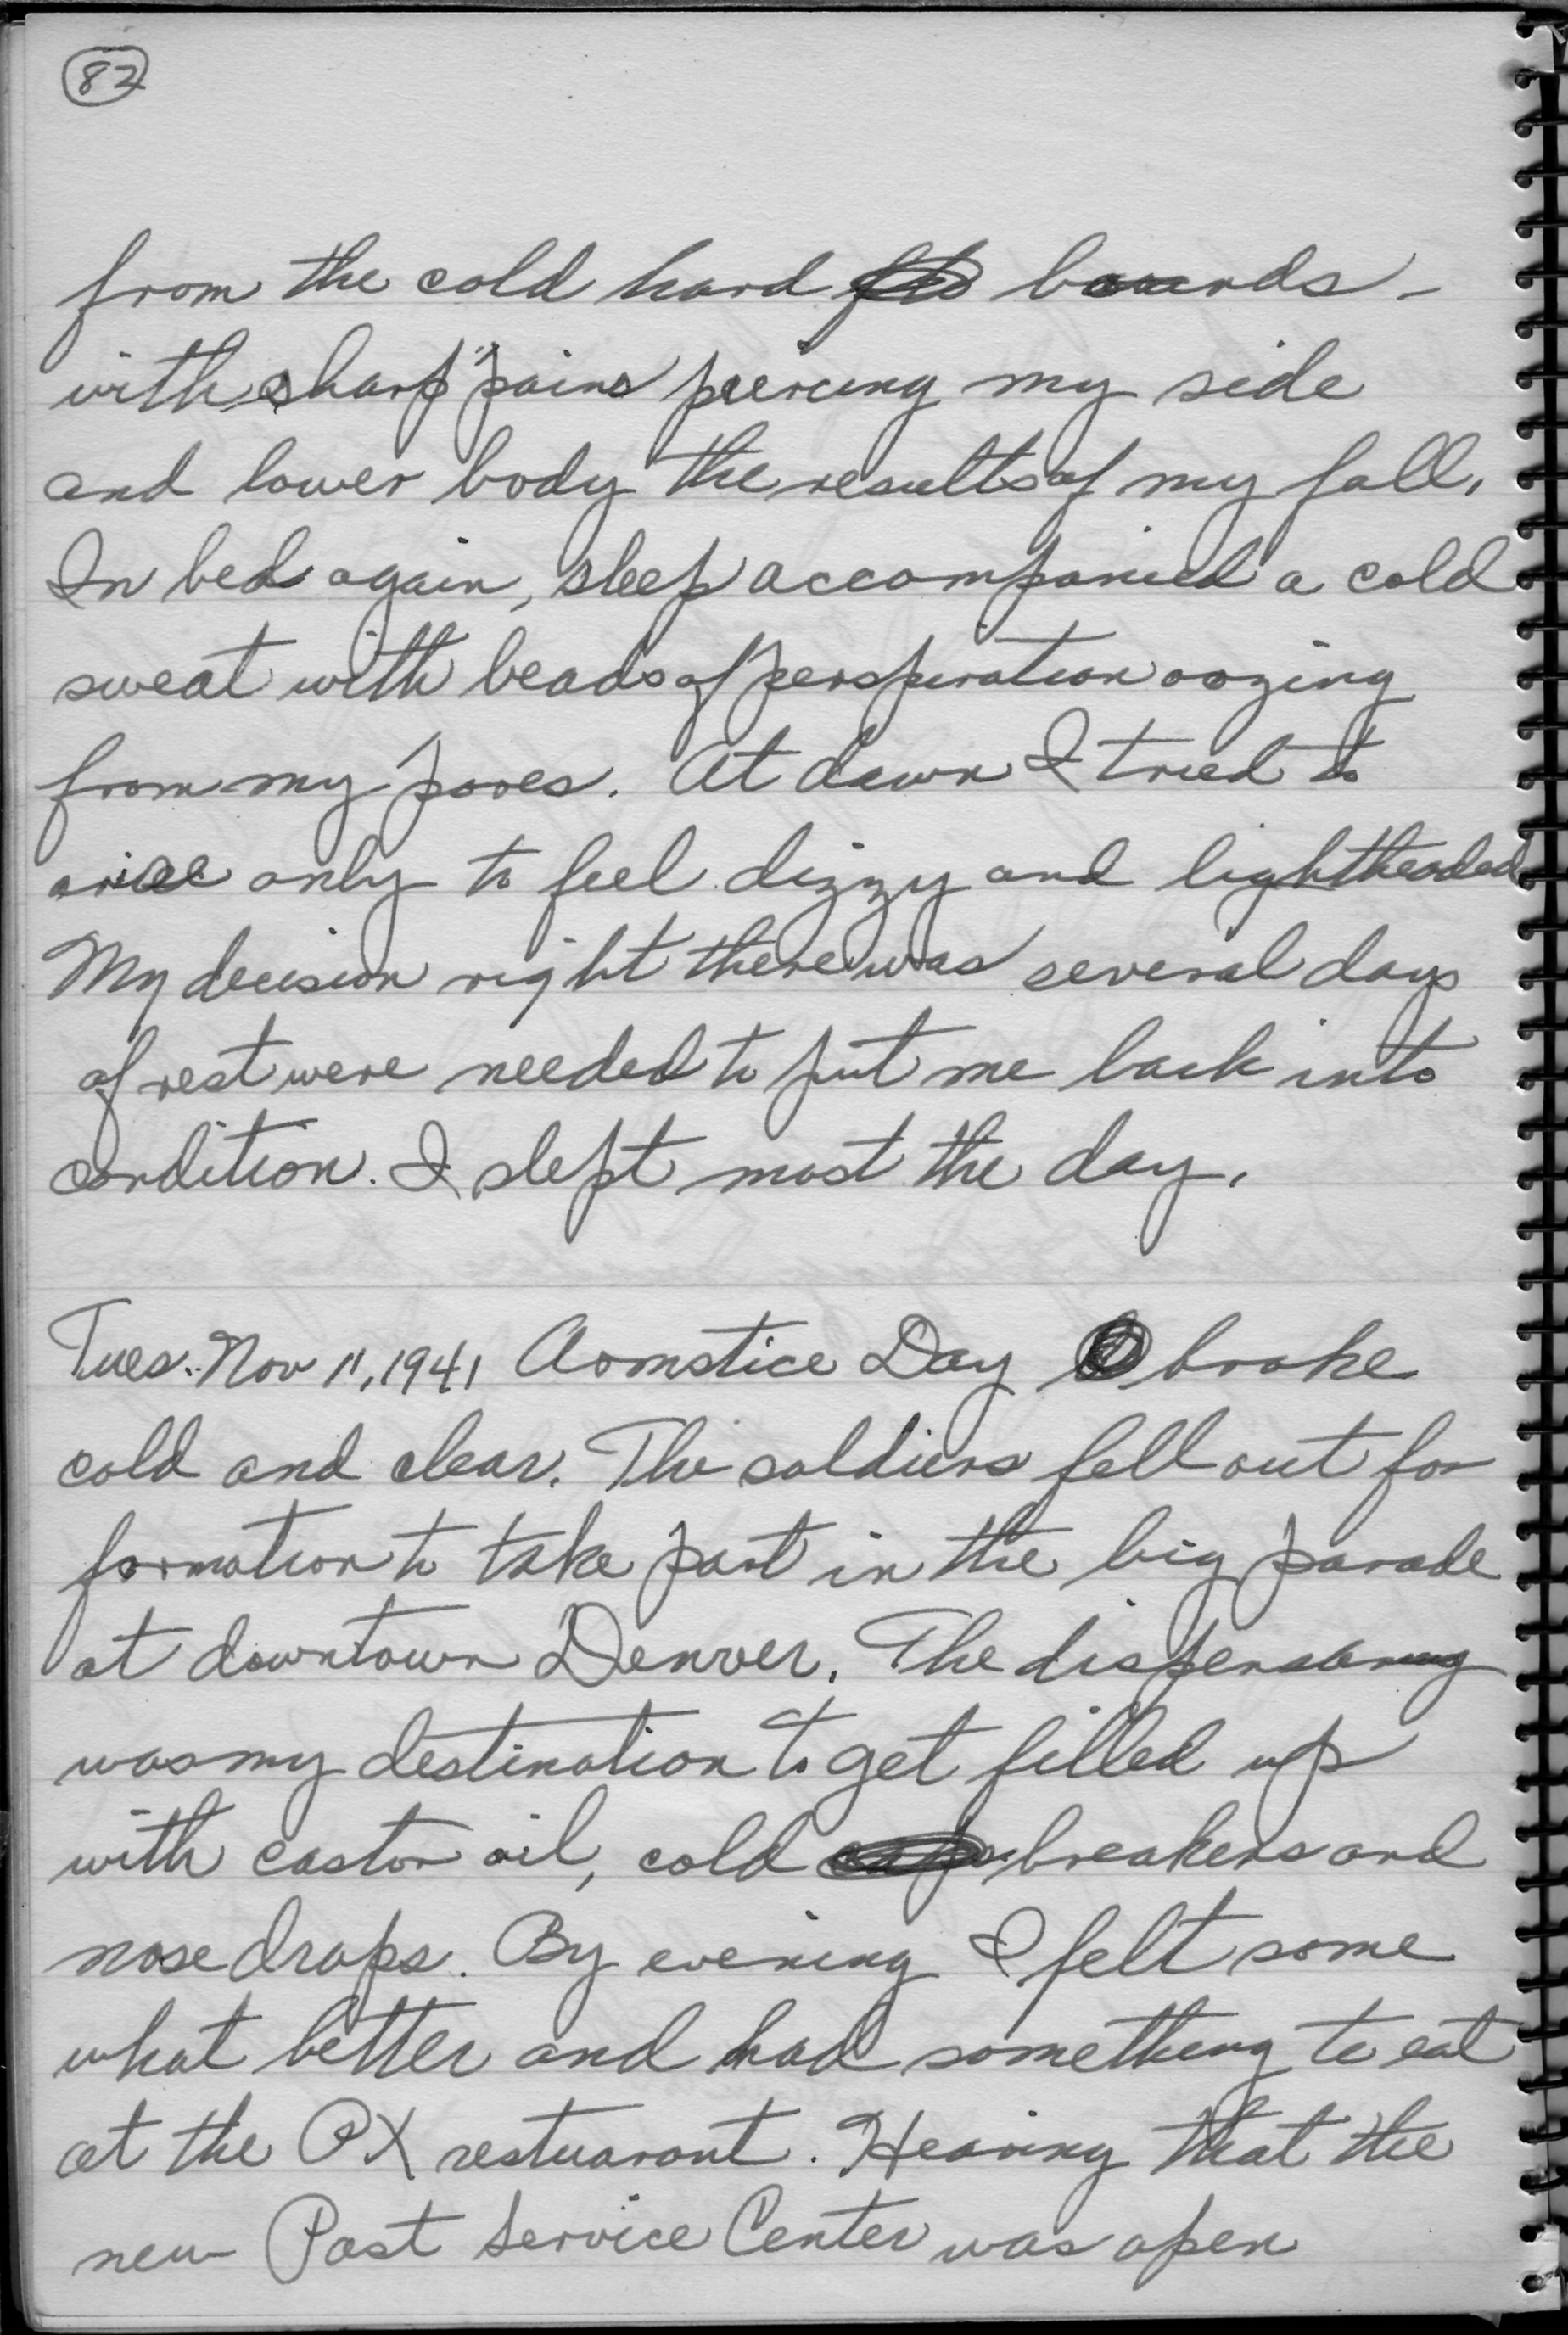 82
from the cold hard boards -
with sharp pains piercing my side
and lower body the results of my fall.
In bed again, sleep accompanied a cold
sweat with beads of perspiration oozing
from my pores. At dawn I tried to
arise only to feel dizzy and lightheaded
My decision right there was several days
of rest were needed to put me back into
condition. I slept most the day.
Tues. Nov 11, 1941 Armstice Day broke
cold and clear. The soldiers fell out for
formation to take part in the big parade
at downtown Denver. The dispensary
was my destination to get filled up
with castor oil, cold breakers and
nose drops. By evening I felt some
what better and had something to eat
at the PX restuarant. Hearing that the
new Post Service Center was open